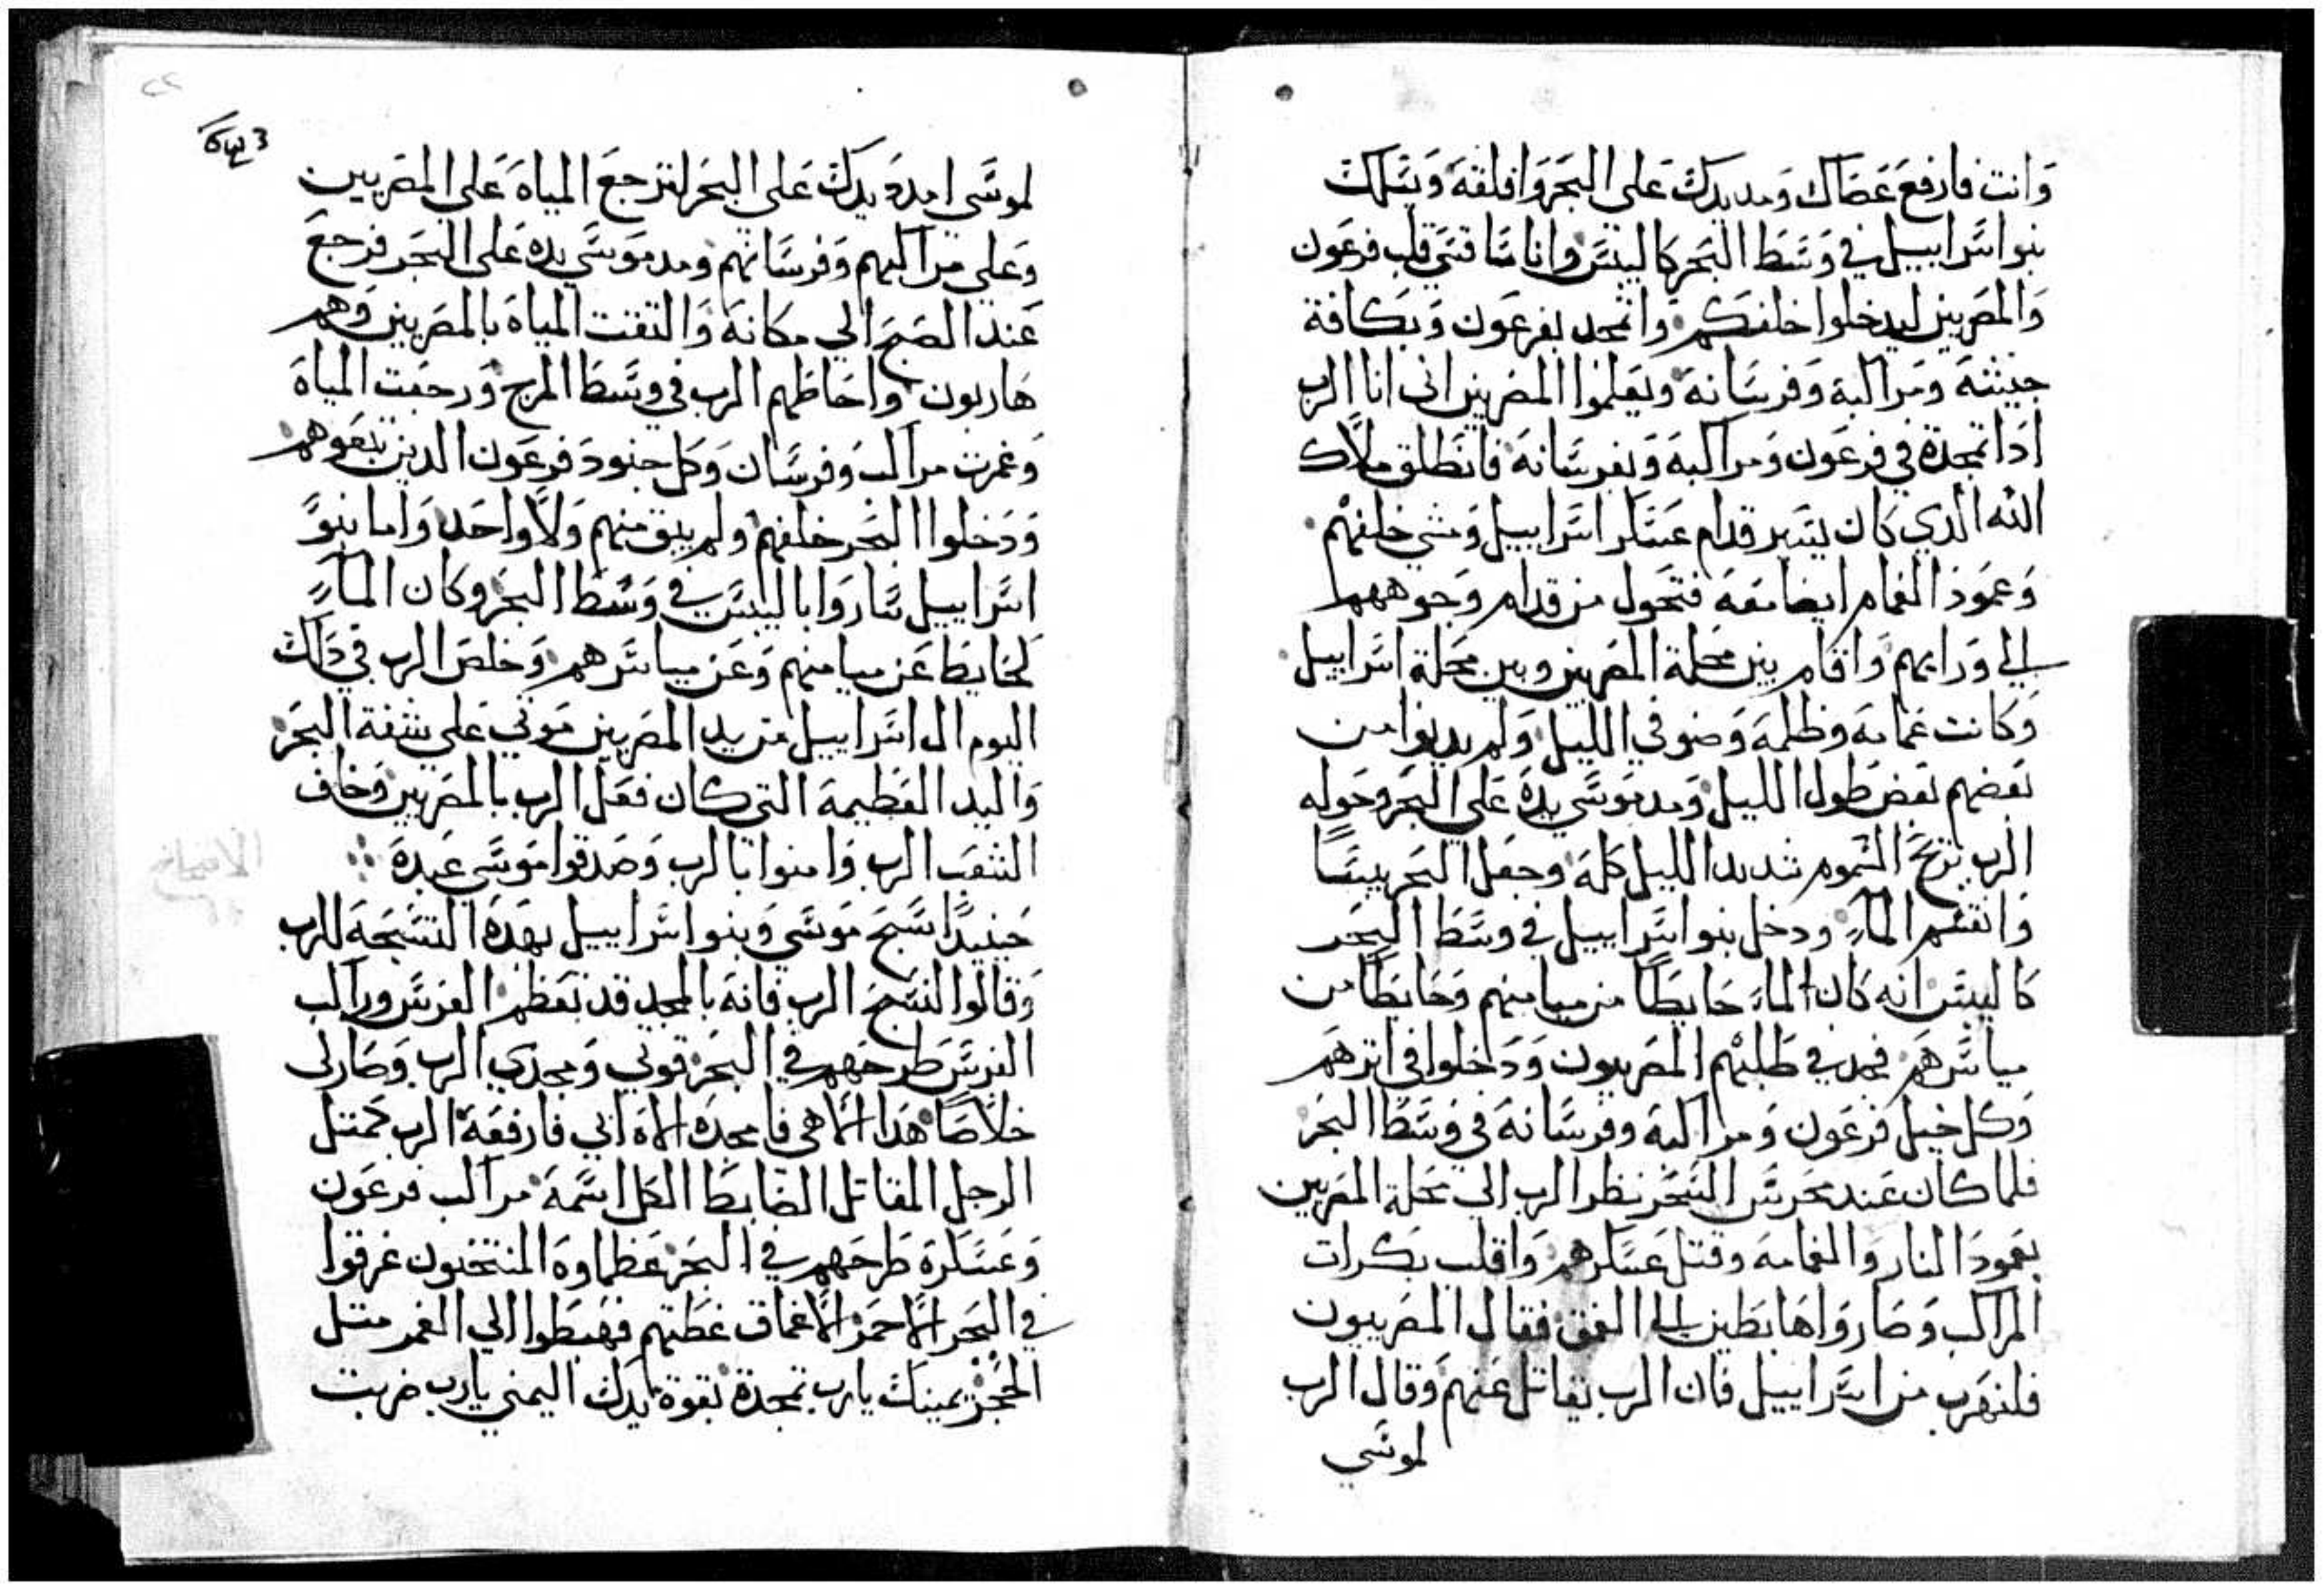 وانت فارفع عصاك ومد يدك على البحر وافلقه ويسلك
بنوا اسراييل في وسط البحر كاليبس وانا ساقسي قلب فرعون
والمصريين ليدخلوا خلفكم واتمجد بفرعون وبكافة
جيشه ومراكبه وفرسانه ويعلموا المصريين اني انا الرب
اذا تمجدة في فرعون ومراكبه وبفرسانه فانطلق ملاك
الله الذي كان يسير قدام عسكر اسراييل ومشي خلفهم
وعمود الغمام ايضا معه فتحول من قدام وجوههم
الي ورايهم واقام بين محلة المصريين وبين محلة اسراييل
وكانت غمامه وظلمه وضو في الليل ولم يدنوا من
بعضهم بعض طول الليل ومد موسي يده على البحر وحوله
الرب بريح السموم شديد الليل كله وجعل البحر يبسا
وانقسم الماء ودخل بنو اسراييل في وسط البحر
كاليبس انه كان الماء حايطا من ميامنهم وحايطا من
مياسرهم فجد في طلبهم المصريون ودخلوا في اثرهم
وكل خيل فرعون ومراكبه وفرسانه في وسط البحر
فلما كان عند محرس السحر نظر الرب الي محلة المصريين
بعمود النار والغمامه وقتل عسكرهم واقلب بكرات
المراكب وصاروا هابطين الي العمق فقال المصريون
فلنهرب من اسراييل فان الرب يقاتل عنهم وقال الرب
لموسي
٢٢
لموسي امدد يدك على البحر لترجع المياه علي المصريين
وعلى مراكبهم وفرسانهم ومد موسي يده على البحر فرجع
عند الصبح الي مكانه والتقت المياه بالمصريين وهم
هاربون واحاطهم الرب في وسط المرج ورجعت المياه
وغمرت مراكب وفرسان وكل جنود فرعون الدين تبعوهم
ودخلوا البحر خلفهم ولم يبق منهم ولا واحد واما بنو
اسراييل ساروا باليبس في وسط البحر وكان الماء
لحايط عن ميامنهم وعن مياسرهم وخلص الرب في ذلك
اليوم ال اسراييل من يد المصريين موتي علي شفة البحر
واليد العظيمة التي كان فعل الرب بالمصريين وخاف
الشعب الرب وامنوا بالرب وصدقوا موسي عبده
حينيدا سبح موسي وبنو اسراييل بهده التسبحة للرب
وقالوا لنسبح الرب فانه بالمجد قد تعظم الفرس وراكب
الفرس طرحهم في البحر قوتي ومجدي الرب وصار لى
خلاصا هدا الاهي فامجده الاه ابي فارفعه الرب كمتل
الرجل المقاتل الضابط الكل اسمه مراكب فرعون
وعسكره طرحهم في البحر عظماوه المنتخبون غرقوا
في البحر الاحمر الاعماق غطتهم فهبطوا الي الغمر متل
الحجر يمينك يارب تمجدة بقوة يدك اليمني يارب ضربت